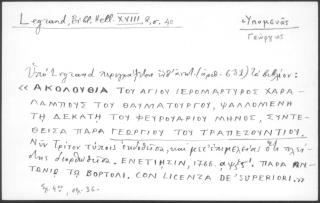 Legrand, Bibl. Hell. XVIII, 2, σ. 40
Ὑπομενᾶς
Γεώργιος
Ὑπὸ Legrand περιγράφεται ὑπ' ἀριθ. (ἀριθ. 631) τὸ βιβλίον:
« ΑΚΟΛΟΥΘΙΑ ΤΟΥ ΑΓΙΟΥ ΙΕΡΟΜΑΡΤΥΡΟΣ ΧΑΡΑ-
ΛΑΜΠΟΥΣ ΤΟΥ ΘΑΥΜΑΤΟΥΡΓΟΥ, ΨΑΛΛΟΜΕΝΗ
ΤΗ ΔΕΚΑΤΗ ΤΟΥ ΦΕΥΡΟΥΑΡΙΟΥ ΜΗΝΟΣ, ΣΥΝΤΕ-
ΘΕΙΣΑ ΠΑΡΑ ΓΕΩΡΓΙΟΥ ΤΟΥ ΤΡΑΠΕΖΟΥΝΤΙΟΥ.
Νῦν Τρίτον τύποις ἐκδοθεῖσα, καὶ μετ' ἐπιμελείας ὅτι πλεί-
στης διορθωθεῖσα. ΕΝΕΤΙΗΣΙΝ, 1766. αψξϛ΄. ΠΑΡΑ ΑΝ-
ΤΩΝΙῼ Τῼ ΒΟΡΤΟΛΙ. CON LICENZA DE' SUPERIORI.»